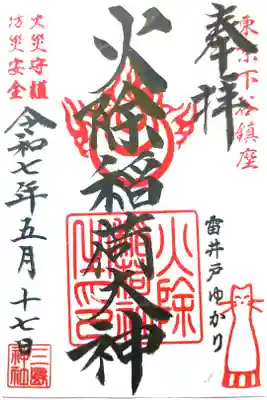 東京下谷鎮座
奉拝
雷井戸ゆかり
火除稲荷大神
火除
火災守護
防災安全
令和七年五月十七日
三島
神社